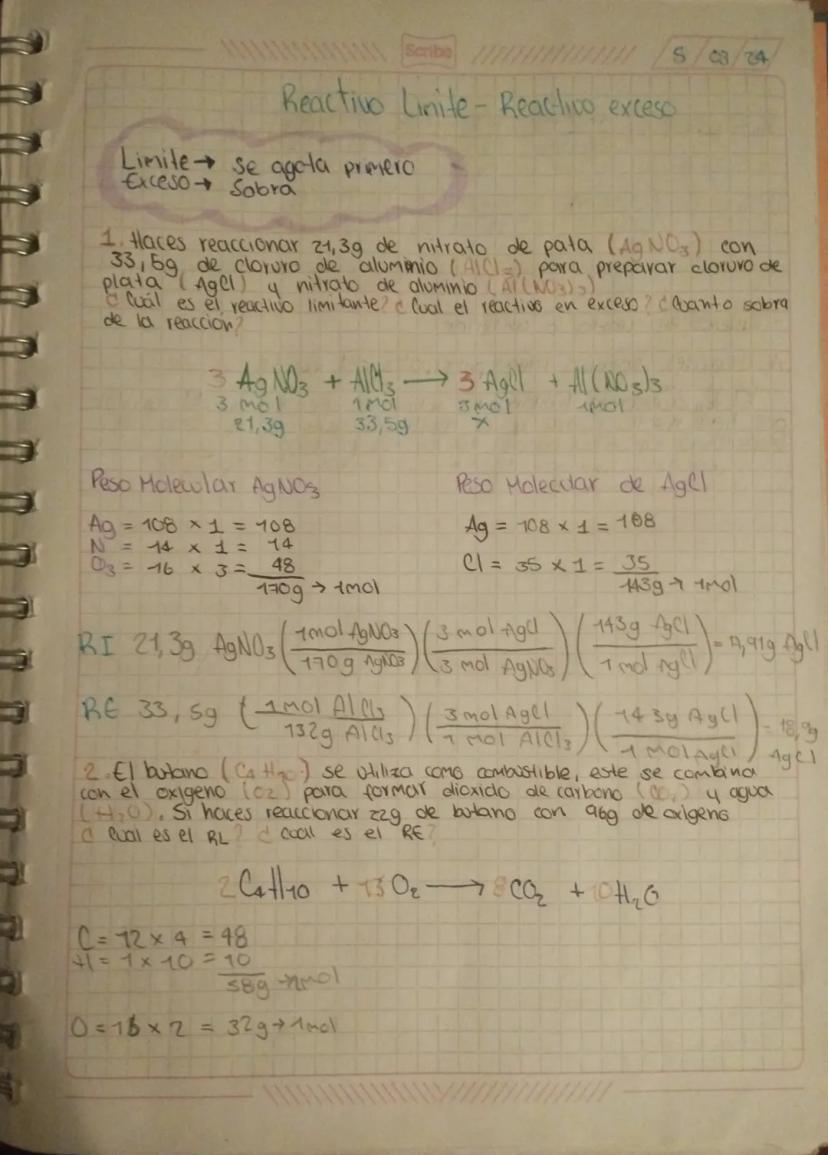 Scribe
5 / 03 / 24
Reactivo Limite - Reactivo exceso
Limite → se agota primero
Exceso → Sobra
1. Haces reaccionar 21,3g de nitrato de pata (AgNO₃) con
33,5g de cloruro de aluminio (AlCl₃) para preparar cloruro de
plata (AgCl) y nitrato de aluminio (Al(NO₃)₃)
¿Cuál es el reactivo limitante? ¿Cual el reactivo en exceso? ¿Cuanto sobra
de la reaccion?
3 AgNO₃ + AlCl₃ → 3 AgCl + Al(NO₃)₃
3 mol 1mol 3mol 1mol
21,3g 33,5g x
Peso Molecular AgNO₃ Peso Molecular de AgCl
Ag = 108 × 1 = 108 Ag = 108 × 1 = 108
N = 14 × 1 = 14
O₃ = 16 × 3 = 48 Cl = 35 × 1 = 35
170g → 1mol 143g → 1mol
RI 21,3g AgNO₃ (1mol AgNO₃ / 170g AgNO₃) (3 mol AgCl / 3 mol AgNO₃) (143g AgCl / 1 mol AgCl) = 17,91g AgCl
RE 33,5g (1mol AlCl₃ / 132g AlCl₃) (3mol AgCl / 1 mol AlCl₃) (143g AgCl / 1 mol AgCl) = AgCl
2. El butano (C₄H₁₀) se utiliza como combustible, este se combina
con el oxigeno (O2) para formar dioxido de carbono (CO₂) y agua
(H₂O). Si haces reaccionar 22g de butano con 96g de oxigeno
¿Cual es el RL? ¿cual es el RE?
2C₄H10 + 13O₂ → 8CO₂ + 10H₂O
C = 12 × 4 = 48
H = 1 × 10 = 10
58g → 1mol
O = 16 × 2 = 32g → 1mol